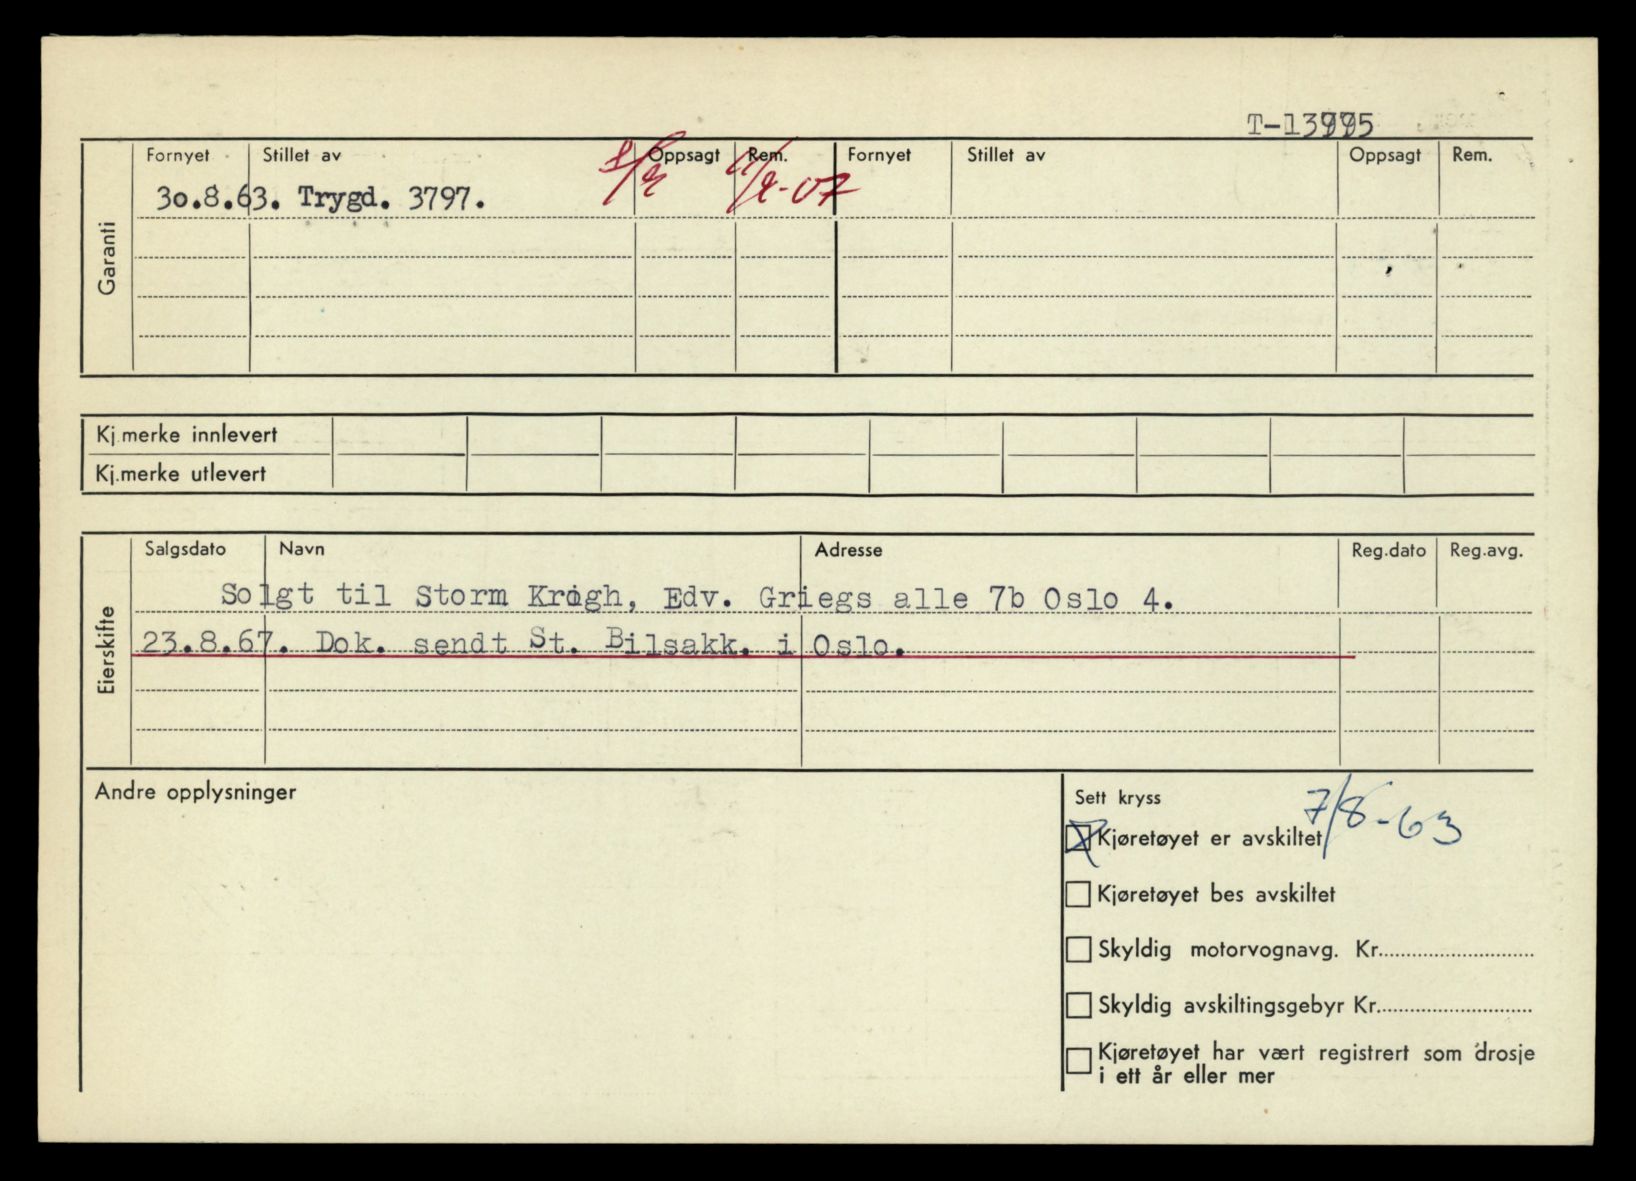 Fornyet Stillet av Oppsagt Rem. Fornyet Stillet av Oppsagt Rem.
30.8.63. Trygd. 3797.
Garanti
Kj.merke innlevert
Kj.merke utlevert
Salgsdato Navn Adresse Reg.dato Reg.avg.
Solgt til Storm Krogh, Edv. Griegs alle 7b Oslo 4.
23.8.67. Dok. sendt St. Bilsakk. i Oslo.
Eierskifte
Andre opplysninger
Sett kryss
7/8-63
Kjøretøyet er avskiltet
Kjøretøyet bes avskiltet
Skyldig motorvognavg. Kr.
Skyldig avskiltingsgebyr Kr.
Kjøretøyet har vært registrert som drosje
i ett år eller mer